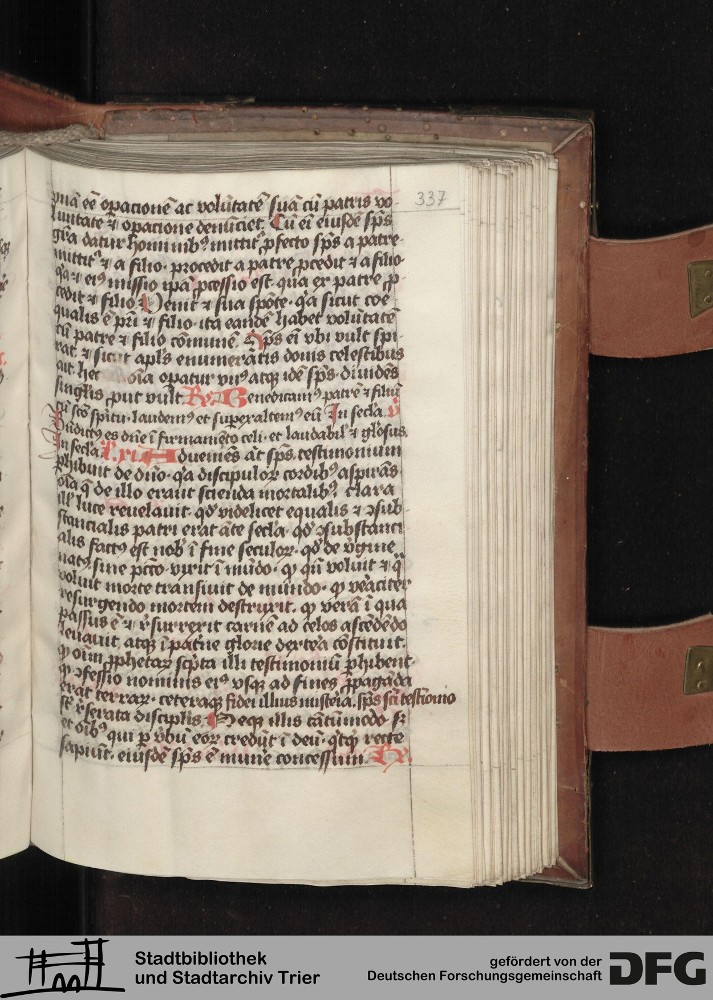 337
una eē opacionē ac volūtatē suā cū patris vo-
luntate ⁊ opacione denūciet. Cū ei eiusdē sp̄s
gr̄a datur hominibꝫ mittit᷑ ꝓfecto sp̄s a patre·
mittit᷑ ⁊ a filio· procedit a patre ꝓcedit ⁊ a filio·
q̄a ⁊ eiꝰ missio ip̄a ꝓcessio est· qua ex patre ꝓ
cedit ⁊ filio. Venit ⁊ sua spōte· q̄a sicut coē
qualis ē pr̄i ⁊ filio· ita eandē habet volūtatē
cū patre ⁊ filio cōmunē. Sp̄s ei vbi vult spi-
rat· ⁊ sicut apl̄s enumeratis donis celestibus
ait. hec oīa opatur vnꝰ atqꝫ idē sp̄s· diuidēs
singlis ꝓut vult. Rx. Benedicamꝰ patrē ⁊ filiū
cū scō spiritu· laudemꝰ et superaltemꝰ eū In secla. v̄
Bn̄dictꝰ es dn̄e ī firmamēto celi· et laudabil᷑ ⁊ gl̄osus.
In secla. L. xi duemēs āt sp̄s testimonium
phibuit de dn̄o· q̄a discipulorꝫ cordibꝰ aspirās
oīa q̄ de illo erant scienda mortalibꝰ clara
ill᷑ luce reuelauit· qd̄ videlicet equalis ⁊ ꝯsub-
stancialis patri erat āte secla· qd̄ ꝯsubstanci
alis factꝰ est nob᷑ ī fine seculorꝫ· qd̄ de v̄gine
natꝰ sine pctō vixit ī mūdo· ꝙ qn̄ voluit ⁊ q̄
voluit morte transiuit de mūndo· ꝙ veraciter
resurgendo mortem destruxit· ꝙ verā ī qua
passus ē ⁊ r̄surrexit carnē ad celos ascēdēdo
leuauit, atqꝫ ī patrīe glorie dextera cōstituit·
ꝙ oīm ꝓphetarꝫ sc̄pta illi testimoniū phibent·
ꝙ ꝯfessio nominis eiꝰ vsqꝫ ad fines ꝓpagāda
erat terrarꝫ· ceteraqꝫ fidei illius misteria. sp̄s sc̄i testīonio
st᷑ r̄serata disciplīs. Neqꝫ illis tātūmodo sꝫ
et oībꝰ qui p v̄bū eorꝫ credūt ī deū· q̄cqꝫ recte
sapiūt· eiusdē sp̄s ē mūne concessum. Rx.
Stadtbibliothek
und Stadtarchiv Trier
gefördert von der
Deutschen Forschungsgemeinschaft DFG